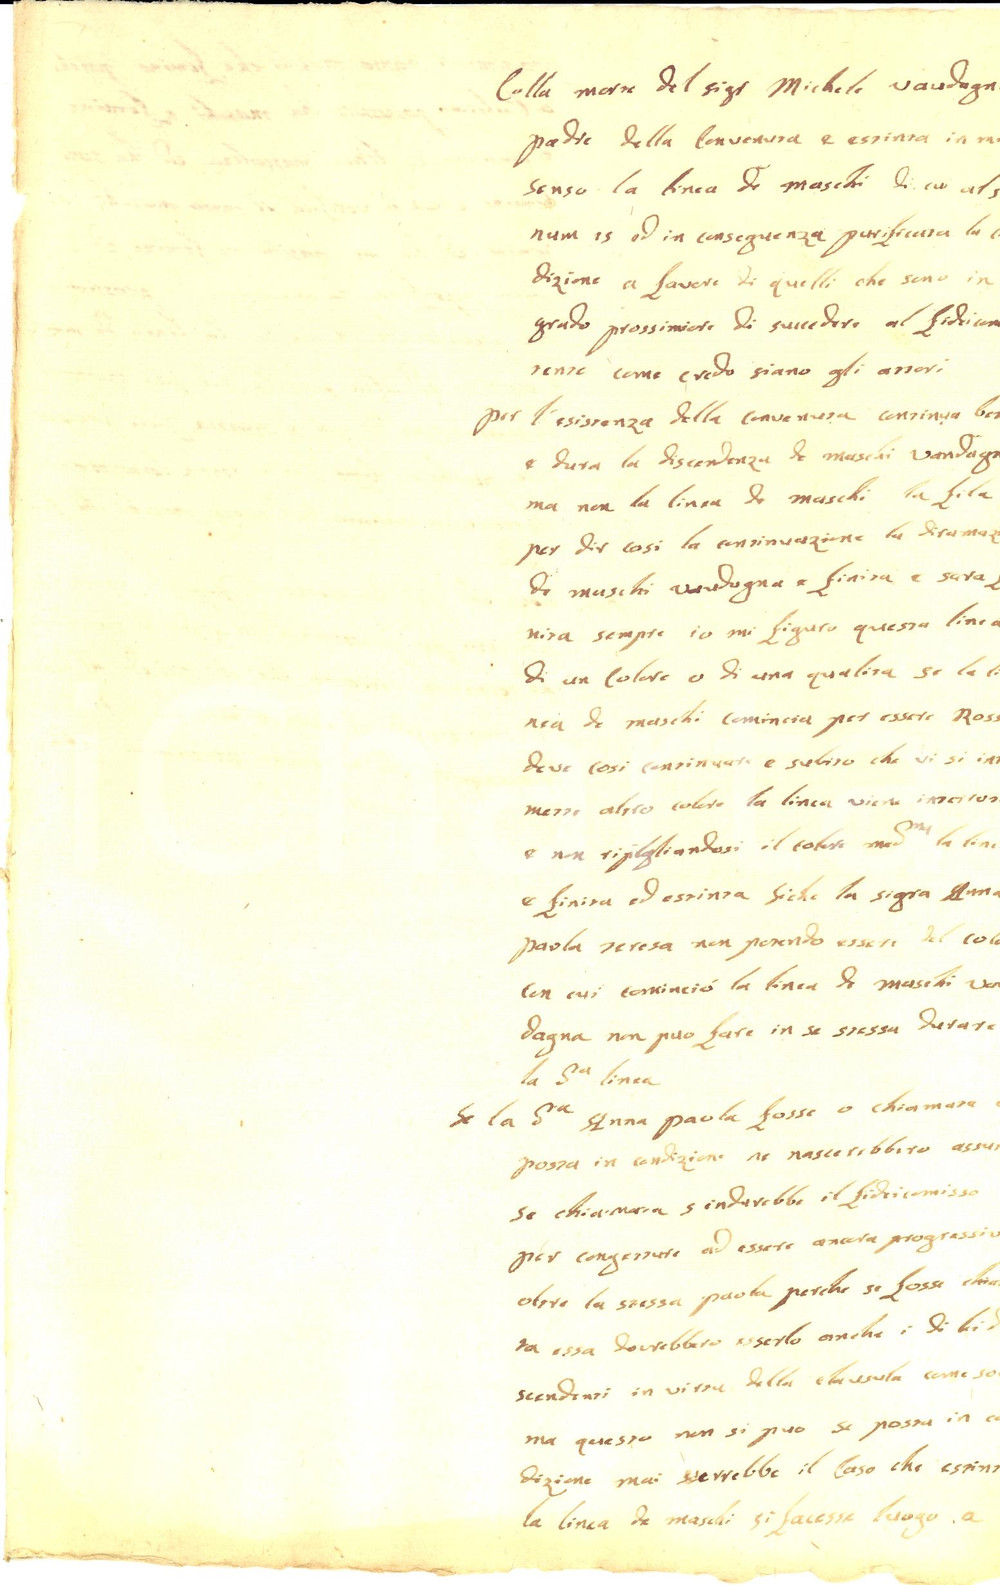 Colla morte del sigr Michele vaudagn
padre della Convenuta e estinta in m
senso la linea de maschi di cu al s
num 15 ed in conseguenza purificata la c
dizione a favore di quelli che sono in
grado prossimiore di succedere al fideicom
tente come credo siano gli attori
per l'esistenza della convenuta continua ben
e dura la discendenza de maschi vaudagn
ma non la linea de maschi la fila
per dir cosi la continuazione la diramaz
de maschi vaudagna e finita e sara f
nita sempre io mi figuro questa linea
di un Colore o di una qualita se la li
nea de maschi comincia per essere Ross
deve cosi continuare e subito che vi si int
mette altro colore la linea viene interrot
e non ripigliandosi il colore med.mo la line
e finita ed estinta siche la sigra Anna
paola teresa non potendo essere del colo
con cui cominció la linea de maschi vau
dagna non puo fare in se stessa durare
la d.a linea
Se la d.a Anna paola fosse o chiamata o
posta in condizione ne nascerebbero assur
se chiamata s indurebbe il fideicomisso
per congetture ad essere ancora progressivo
oltre la stessa paola perche se fosse chia
ta essa dovrebbero esserlo anche i di lei d
scendenti in virtu della clausula come so
ma questo non si puo se posta in co
dizione mai verrebbe il Caso che estint
la linea de maschi si facesse luogo a